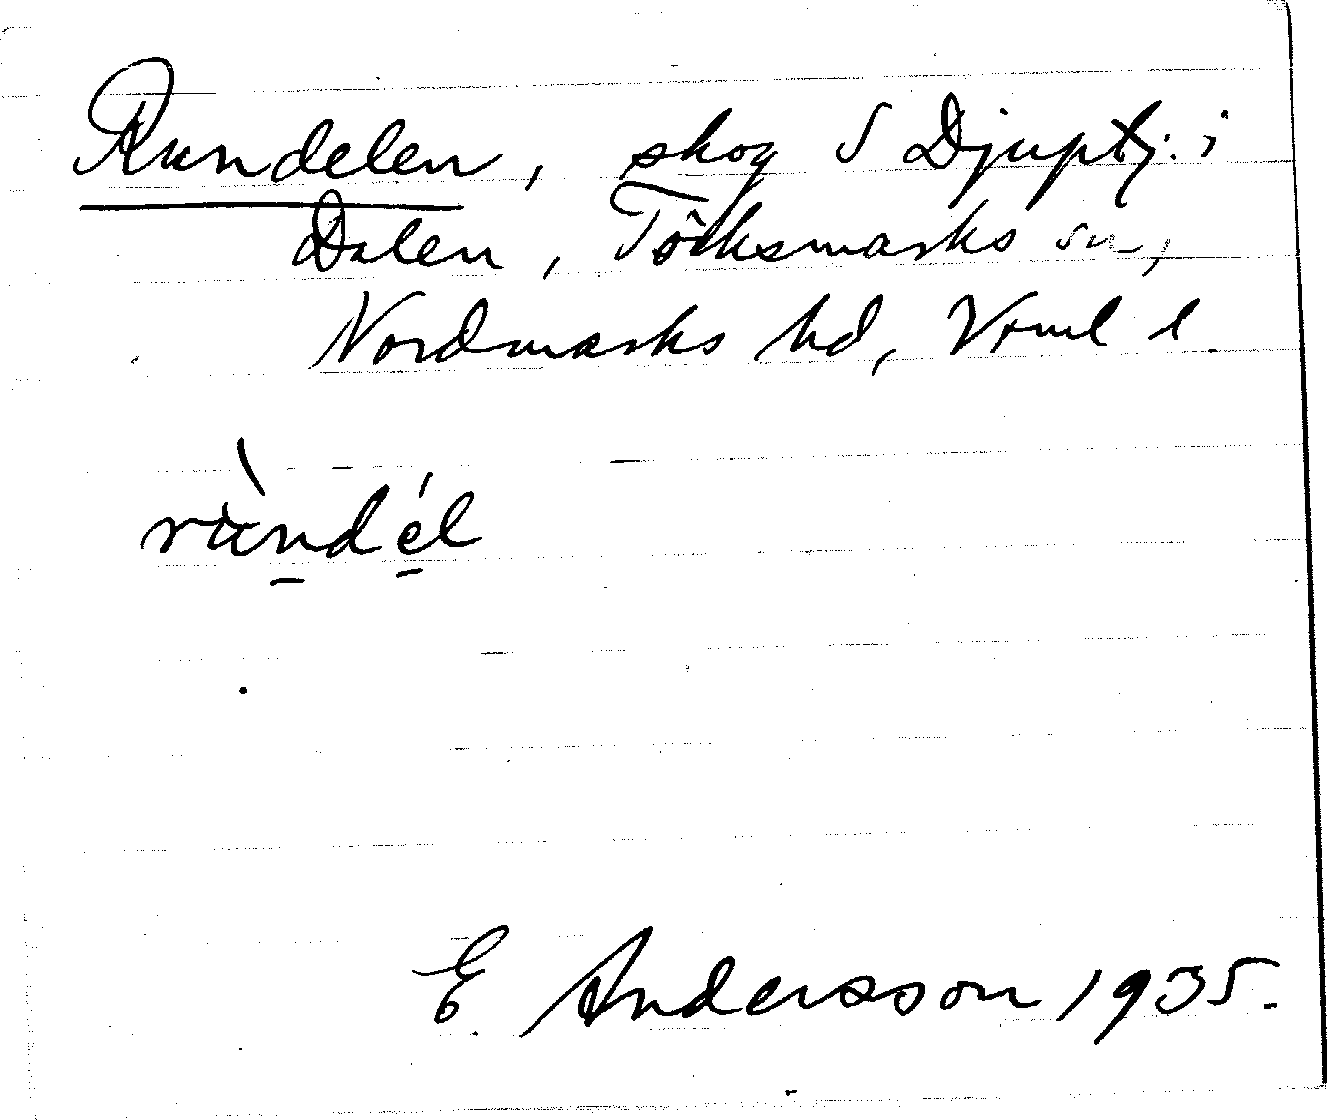 Rundelen, skog S Djuptj. i
Dalen, Töcksmarks sn,
Nordmarks hd, Vrml l
rùndél
E Andersson 1935.